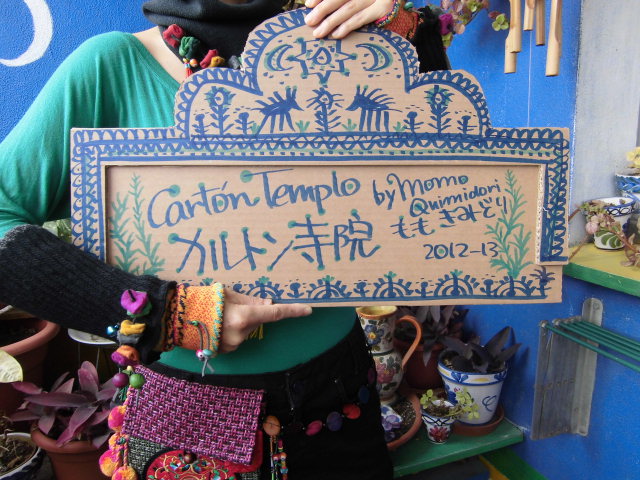 Cartón Templo
by momo
Quimidori
カルトン寺院
ももきみどり
2012-13